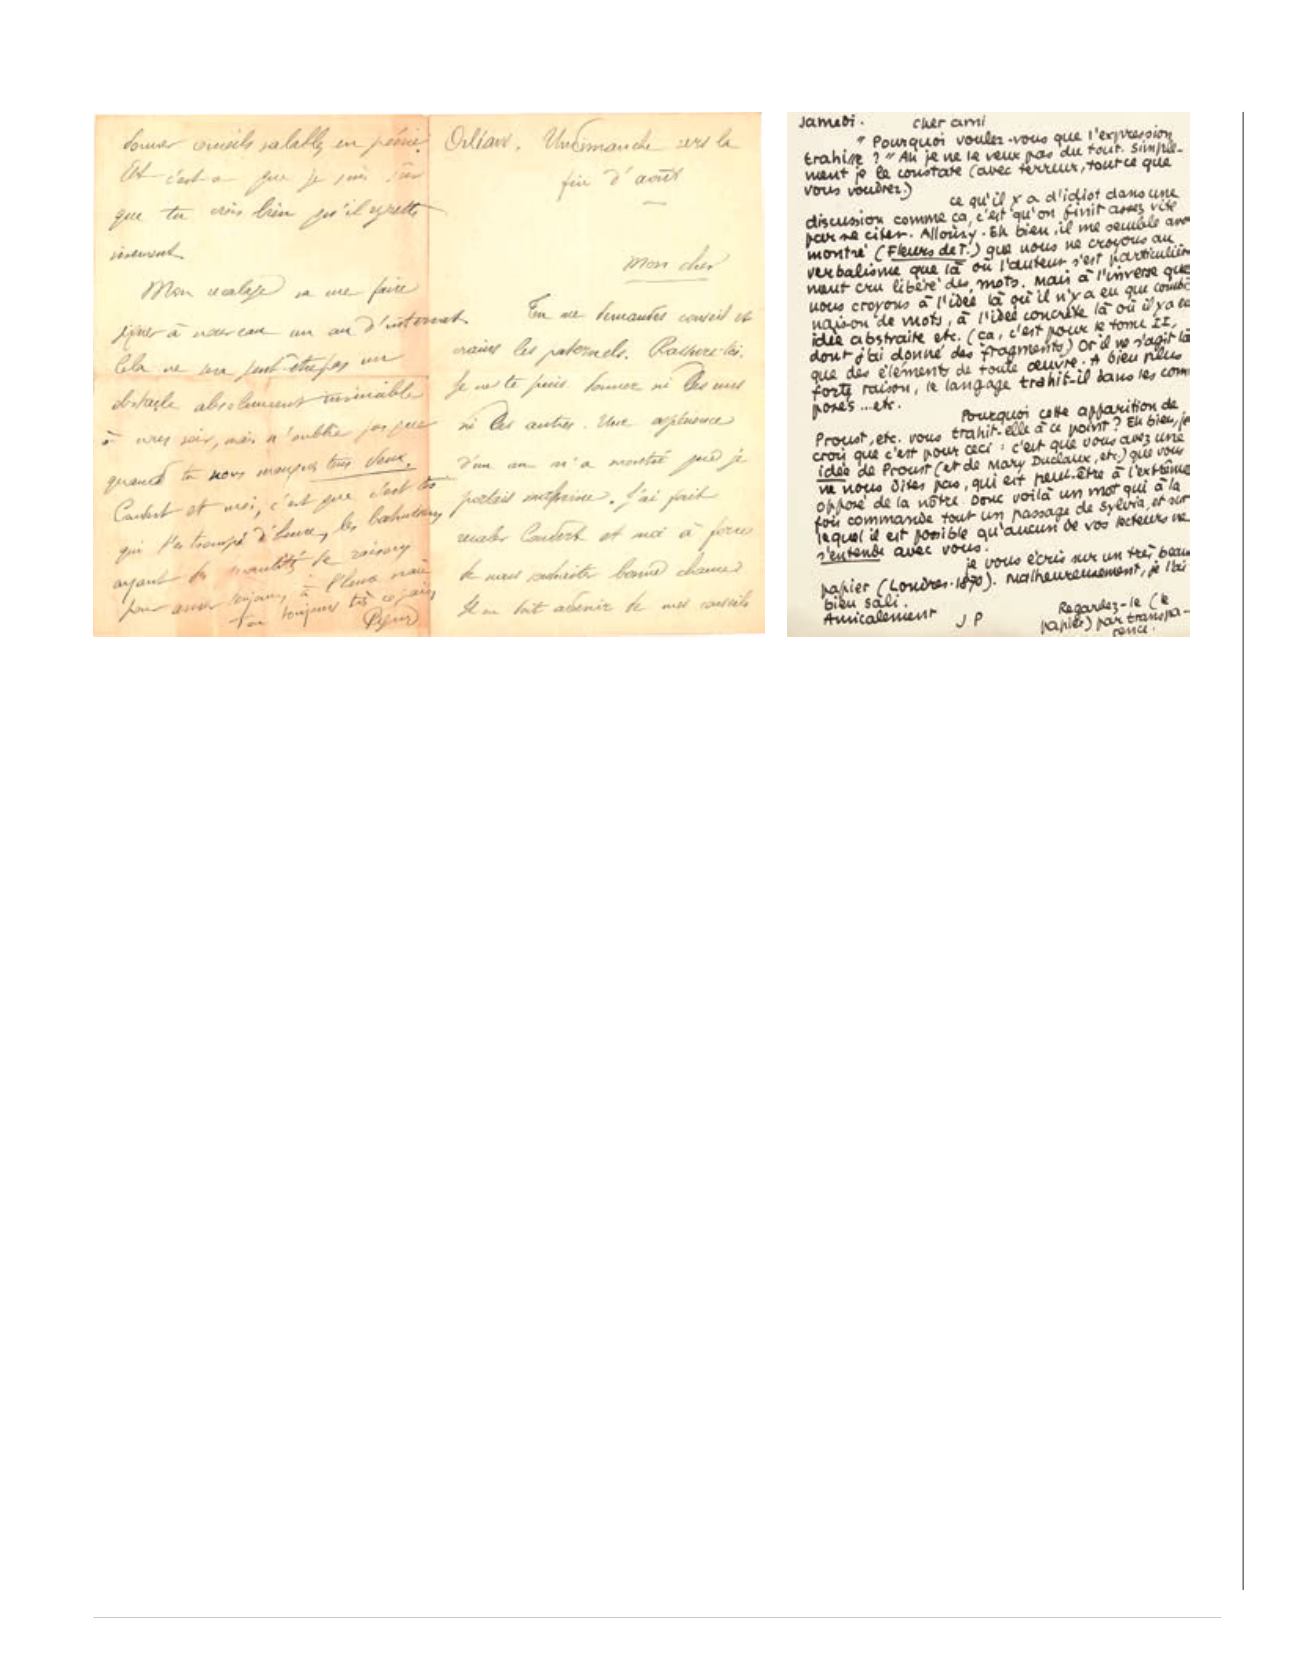 donner conseils valables en poésie.
Et c'est à que je suis sûr
que tu crois bien qu'il regrette
vivement.
Mon recalage va me faire
signer à nouveau un an d'internat.
Cela ne sera peut-être pas un
obstacle absolument invincible
à nous voir, mais n'oublie pas que
quand tu nous manques tous deux,
et moi, c'est que c'est toi
qui t'es trompé d'heure, les
ayant de de raisons
pour
toujours très
Péguy
Orléans. Un dimanche vers la
fin d'août
Mon cher
Tu me demandes conseil et
crains les paternels. Rassure-toi.
Je ne te puis donner ni les uns
ni les autres. Une expérience
d'un an m'a montré que je
portais malheur. J'ai fait
recaler et moi à force
de nous souhaiter bonne chance
Il en doit advenir de mes conseils
Samedi. cher ami
" Pourquoi voulez-vous que l'expression
trahisse ? " Ah je ne le veux pas du tout. Simple-
ment je le constate (avec terreur, tout ce que
vous voudrez.)
ce qu'il y a d'idiot dans une
discussion comme ça, c'est qu'on finit assez vite
par se citer. Allons-y. Eh bien, il me semble avoir
montré (Fleurs de T.) que nous ne croyons au
verbalisme que là où l'auteur s'est particulière
ment cru libéré des mots. Mais à l'inverse que
nous croyons à l'idée là où il n'y a eu que combi
naison de mots, à l'idée concrète là où il y a eu
idée abstraite etc. (ça, c'est pour le tome II,
dont j'ai donné des fragments) Or il ne s'agit là
que des éléments de toute œuvre. A bien plus
forte raison, le langage trahit-il dans les com
posés ... etc.
Pourquoi cette apparition de
Proust, etc. vous trahit-elle à ce point ? Eh bien, je
crois que c'est pour ceci : c'est que vous avez une
idée de Proust (et de Mary Duclaux, etc.) que vous
ne nous dites pas, qui est peut-être à l'extrême
opposé de la nôtre. Donc voilà un mot qui à la
fois commande tout un passage de Sylvia, et sur
lequel il est possible qu'aucun de vos lecteurs ne
s'entende avec vous.
je vous écris sur un très beau
papier (Londres-1890). Malheureusement, je l'ai
bien sali.
Amicalement J P
Regardez-le (le
papier) par transpa-
rence.